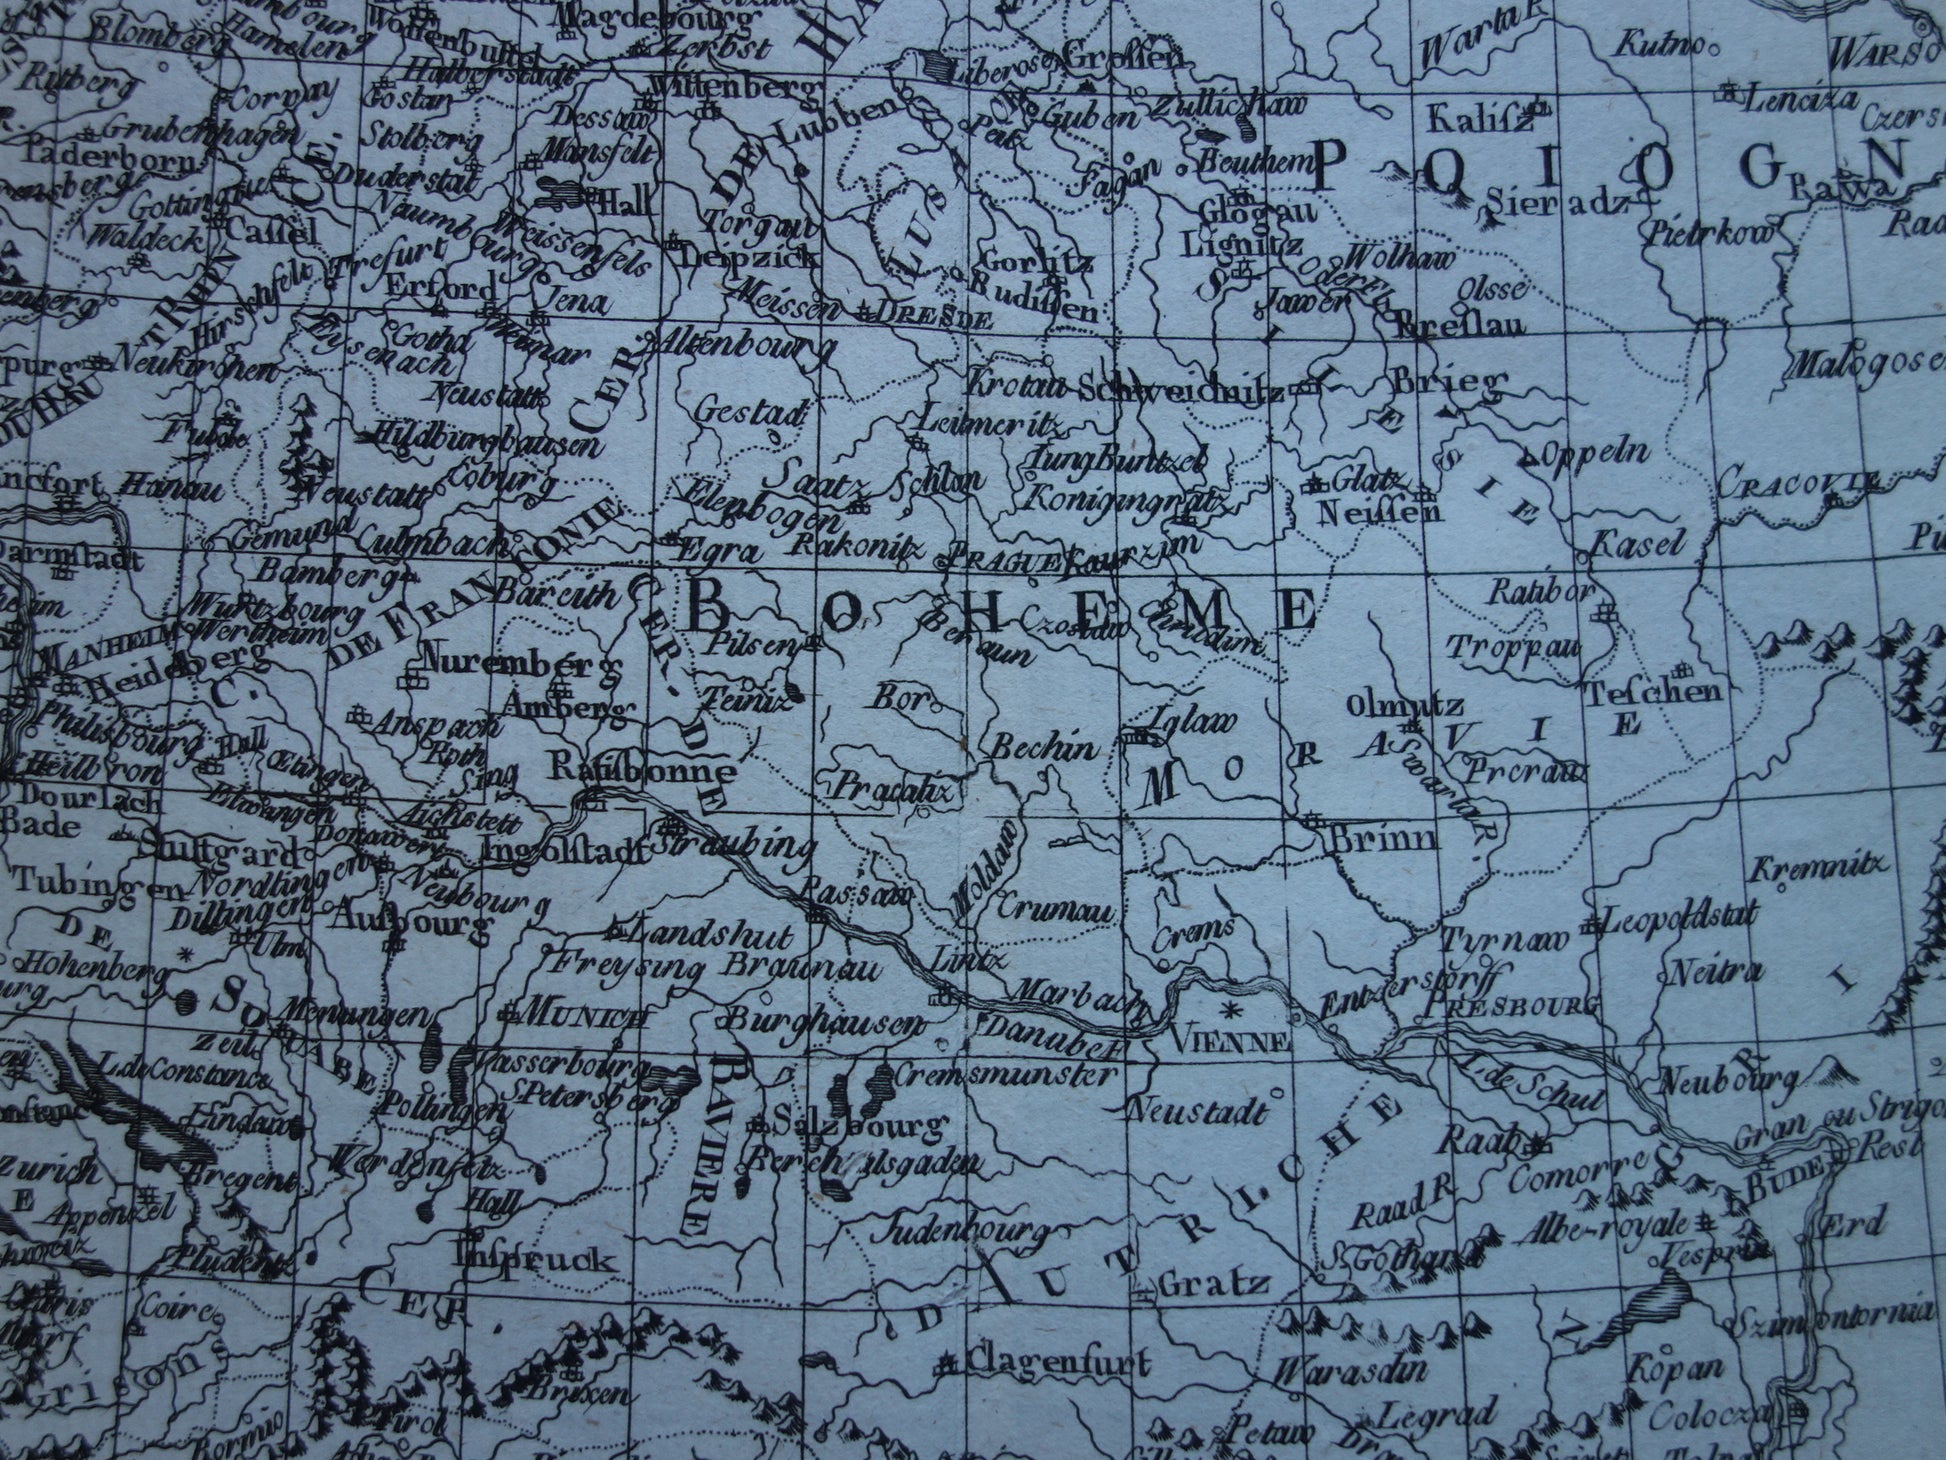 Blomberg
Hamelen
Wolfenbuttel
Magdebourg
Zerbst
Warta R.
Kutno
WARSO
Ritberg
Corvay
Halberstadt
Goslar
Wittenberg
Liberose
Grossen
Lenciza
Czers
Grubenhagen
Stolberg
Dessaw
Lubben
Guben
Zullichaw
Kalisz
Paderborn
Mansfelt
Peitz
Duderstat
Hall
DE
LUSA
Fagan
Beuthem
POLOGN
Gottingue
Naumbourg
Weissenfels
Torgau
Glogau
Sieradz
Rawa
Waldeck
Cassel
Trefurt
Leipzick
Gorlitz
Lignitz
Wolhaw
Pietrkow
Rad
T RHIN
Hirshfelt
Erford
Jena
Meissen
DRESDE
Budissen
Jawer
Oder Fl.
Olsse
Breslau
Neukirshen
Eysenach
Gotha
Weimar
Altenbourg
Krotau
Schweidnitz
Brieg
Malogose
DUHAU
Neustatt
CER.
Gestad
Leitmeritz
SILESIE
Fulde
Hildburghausen
Saatz
Schlan
Iung Buntzel
Glatz
Oppeln
ncfort
Hanau
Neustatt
Coburg
Elenbogen
Konigingratz
Neissen
CRACOVIE
Gemund
Culmbach
Egra
Rakonitz
PRAGUE
Kaurzim
Kasel
Darmstadt
Bamberg
DE FRANCONIE
Bareith
BOHEME
Ratibor
Wurtzbourg
Wertheim
Pilsen
Beraun
Czoslau
Chrudim
Troppau
MANHEIM
Heidelberg
C.
Nuremberg
CER. DE
Teiniz
Bor
Olmutz
Teschen
Philisbourg
Hall
Anspach
Amberg
Iglaw
MORAVIE
Heilbron
Œtingen
Roth
Sing
Ratisbonne
Bechin
Swarta R.
Prerau
Dourlach
Elwangen
Aichstett
Pracaliz
Bade
Stuttgard
Donawert
Ingolstadt
Straubing
Brinn
Tubingen
Nordlingen
Neubourg
Passaw
Moldaw
Crumau
Kremnitz
Dillingen
Ausbourg
DE
Ulm
Landshut
Crems
Tyrnaw
Leopoldstat
Hohenberg
Freysing
Braunau
Lintz
Entzerstorff
Neitra
SOUABE
Memungen
MUNICH
Burghausen
Marbach
VIENNE
PRESBOURG
Zeil
Danube Fl.
L. de Constance
Wasserbourg
Cremsmunster
I. de Schut
Neubourg
Lindaw
Pollingen
S. Petersberg
Neustadt
Salzbourg
BAVIERE
Raab
Gran ou Strigo
Zurich
Bregent
Werdenfelz
Comorre
BUDE
Pest
Appenzel
Hall
Raab R.
Albe-royale
Erd
Pludentz
Judenbourg
S. Gothard
Vesprin
Inspruck
CER.
D'AUTRICHE
Gratz
Coire
Szimontornia
Grisons
Brixen
Clagenfurt
Warasdin
Kopan
Tirol
Legrad
Colocza
Bormio
Petaw